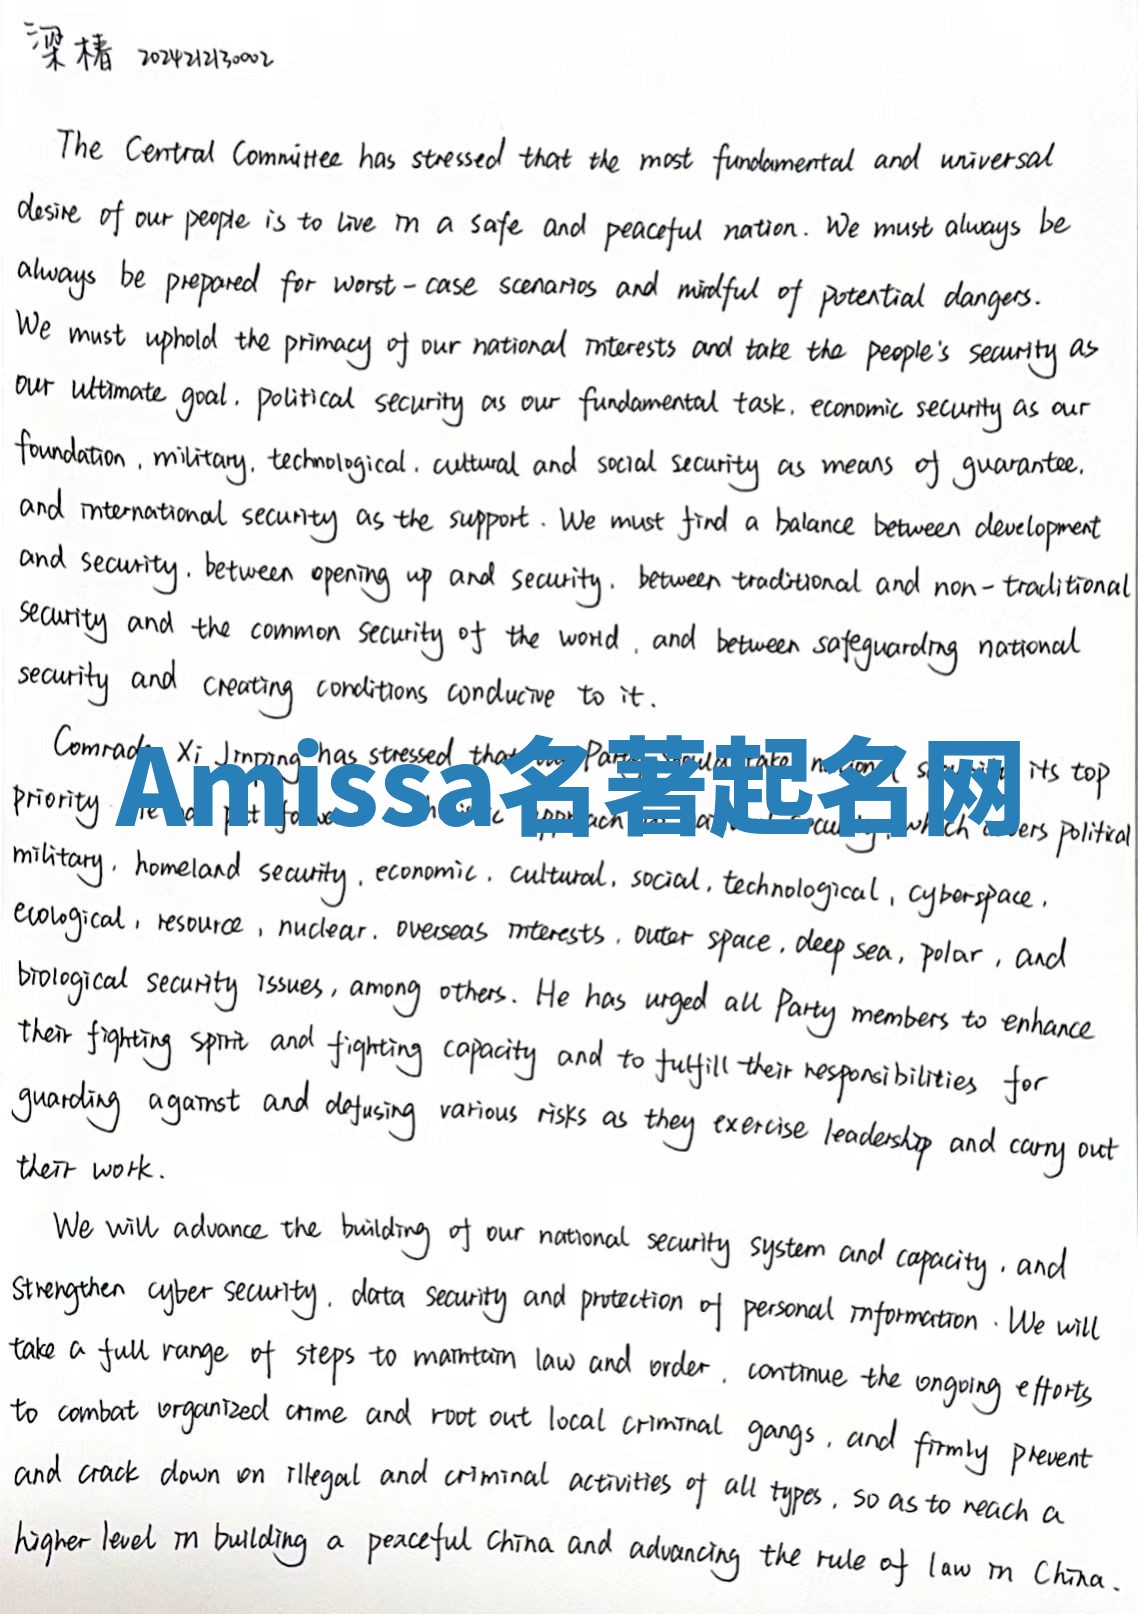 梁椿 2024212130002
The Central Committee has stressed that the most fundamental and universal
desire of our people is to live in a safe and peaceful nation. We must always be
always be prepared for worst-case scenarios and mindful of potential dangers.
We must uphold the primacy of our national interests and take the people's security as
our ultimate goal, political security as our fundamental task, economic security as our
foundation, military, technological, cultural and social security as means of guarantee,
and international security as the support. We must find a balance between development
and security, between opening up and security, between traditional and non-traditional
security and the common security of the world, and between safeguarding national
security and creating conditions conducive to it.
Comrade Xi Jinping has stressed that Party should take national its top
Amissa名著起名网
priority put approach security, which covers political
military, homeland security, economic, cultural, social, technological, cyberspace,
ecological, resource, nuclear, overseas interests, outer space, deep sea, polar, and
biological security issues, among others. He has urged all Party members to enhance
their fighting spirit and fighting capacity and to fulfill their responsibilities for
guarding against and defusing various risks as they exercise leadership and carry out
their work.
We will advance the building of our national security system and capacity, and
strengthen cyber security, data security and protection of personal information. We will
take a full range of steps to maintain law and order, continue the ongoing efforts
to combat organized crime and root out local criminal gangs, and firmly prevent
and crack down on illegal and criminal activities of all types, so as to reach a
higher level in building a peaceful China and advancing the rule of law in China.